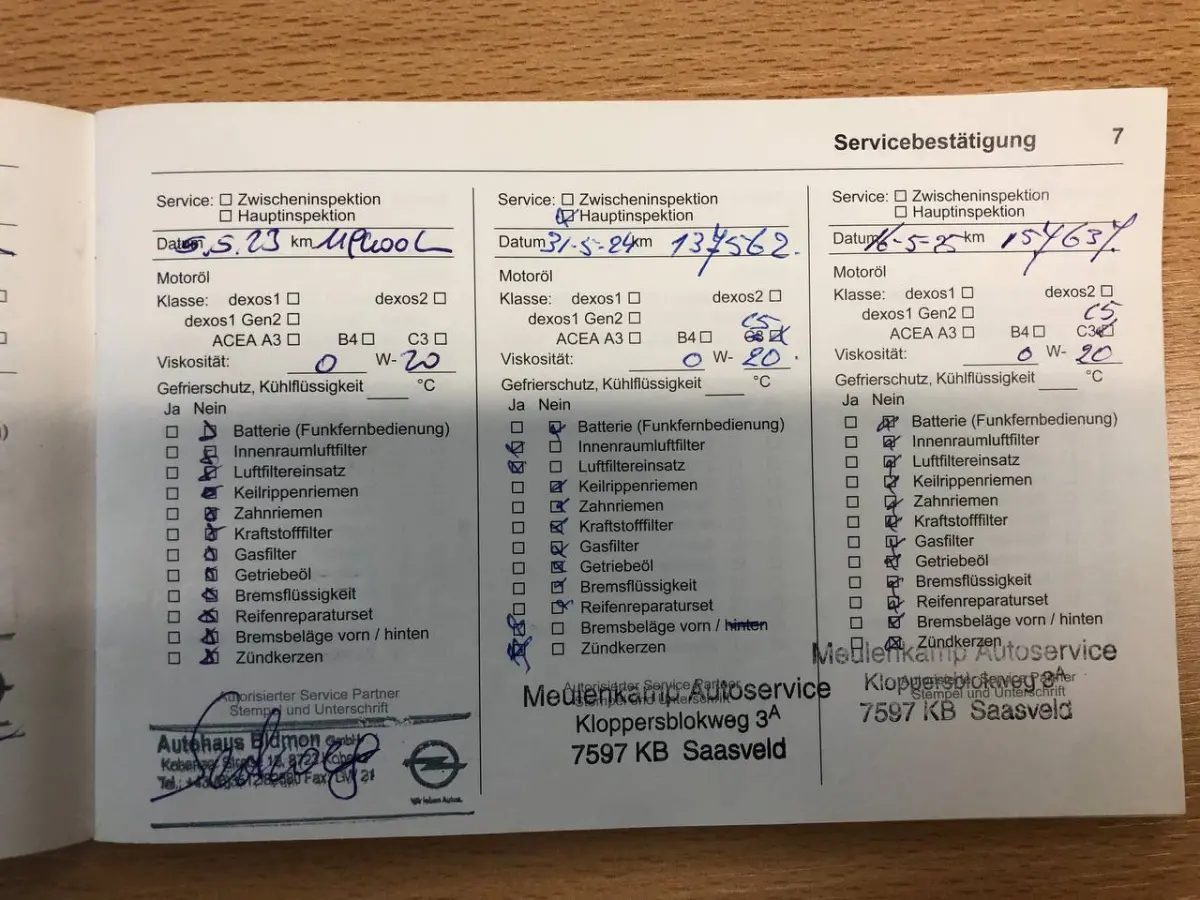 Servicebestätigung 7
Service: Zwischeninspektion
Hauptinspektion
Datum 5.5.23 km
Motoröl
Klasse: dexos1 dexos2
dexos1 Gen2
ACEA A3 B4 C3
Viskosität: 0 W-20
Gefrierschutz, Kühlflüssigkeit °C
Ja Nein
Batterie (Funkfernbedienung)
Innenraumluftfilter
Luftfiltereinsatz
Keilrippenriemen
Zahnriemen
Kraftstofffilter
Gasfilter
Getriebeöl
Bremsflüssigkeit
Reifenreparaturset
Bremsbeläge vorn / hinten
Zündkerzen
Autorisierter Service Partner
Stempel und Unterschrift
Autohaus Bidmon GmbH
Wir leben Autos.
Service: Zwischeninspektion
Hauptinspektion
Datum 31-5-24 km 137562.
Motoröl
Klasse: dexos1 dexos2
dexos1 Gen2 C5
ACEA A3 B4 C3
Viskosität: 0 W- 20.
Gefrierschutz, Kühlflüssigkeit °C
Ja Nein
Batterie (Funkfernbedienung)
Innenraumluftfilter
Luftfiltereinsatz
Keilrippenriemen
Zahnriemen
Kraftstofffilter
Gasfilter
Getriebeöl
Bremsflüssigkeit
Reifenreparaturset
Bremsbeläge vorn / hinten
Zündkerzen
Autorisierter Service Partner
Stempel und Unterschrift
Meulenkamp Autoservice
Kloppersblokweg 3A
7597 KB Saasveld
Service: Zwischeninspektion
Hauptinspektion
Datum 16-5-25 km 157637.
Motoröl
Klasse: dexos1 dexos2
dexos1 Gen2 C5
ACEA A3 B4 C3
Viskosität: 0 W- 20
Gefrierschutz, Kühlflüssigkeit °C
Ja Nein
Batterie (Funkfernbedienung)
Innenraumluftfilter
Luftfiltereinsatz
Keilrippenriemen
Zahnriemen
Kraftstofffilter
Gasfilter
Getriebeöl
Bremsflüssigkeit
Reifenreparaturset
Bremsbeläge vorn / hinten
Zündkerzen
Meulenkamp Autoservice
Autorisierter Service Partner
Kloppersblokweg 3A
Stempel und Unterschrift
7597 KB Saasveld